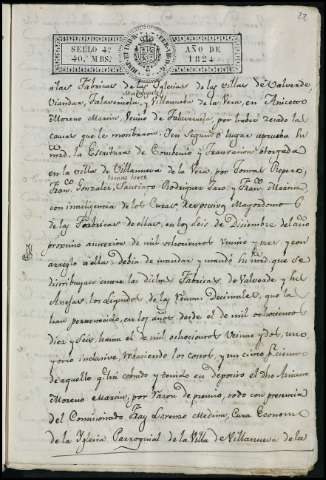 22
SELLO 4º
40. MRS.
AÑO DE
1824.
a las Fabricas de las Yglesias de las Villas de Valverde,
Viandar, Talaveruela, y Villanueva de la Vera, en Aniceto
Moreno Marin, Vecino de Talaveruela, por haber
causas que le motibaron. En Segundo lugar aprueba su
md. la Escritura de Combenio y Transacion otorgada
en la Villa de Villanueva de la Vera por Tomas
Franco. Gonzalez, Santiago Rodriguez Caro y Franco.
con inteligencia de los Curas Rexpectivos y Magordomos
de las Fabricas de ellas, en los Seis de Diciembre del año
proximo anterior de mil ochocientos Veinte y tres, y con
arreglo a ellas debia de mandar y mandó Su md. que se
distribuyan entre las dichas Fabricas de Valverde y sus
Anejas, los liquidos de las Rentas Decimales, que la
han pertenecido, en los años desde el de mil ochocientos
diez y seis, hasta el de mil ochocientos Veinte y dos, uno
y otro inclusive, Vajandose las costas, y un cinco p. ciento
de aquello que há cobrado y tomado en deposito el dho Aniceto
Moreno Marin, por razon de premio, todo con presencia
del Comisionado Fray Lorenzo Medina, Cura Economo
de la Yglesia Parroquial de la Villa de Villanueva de la